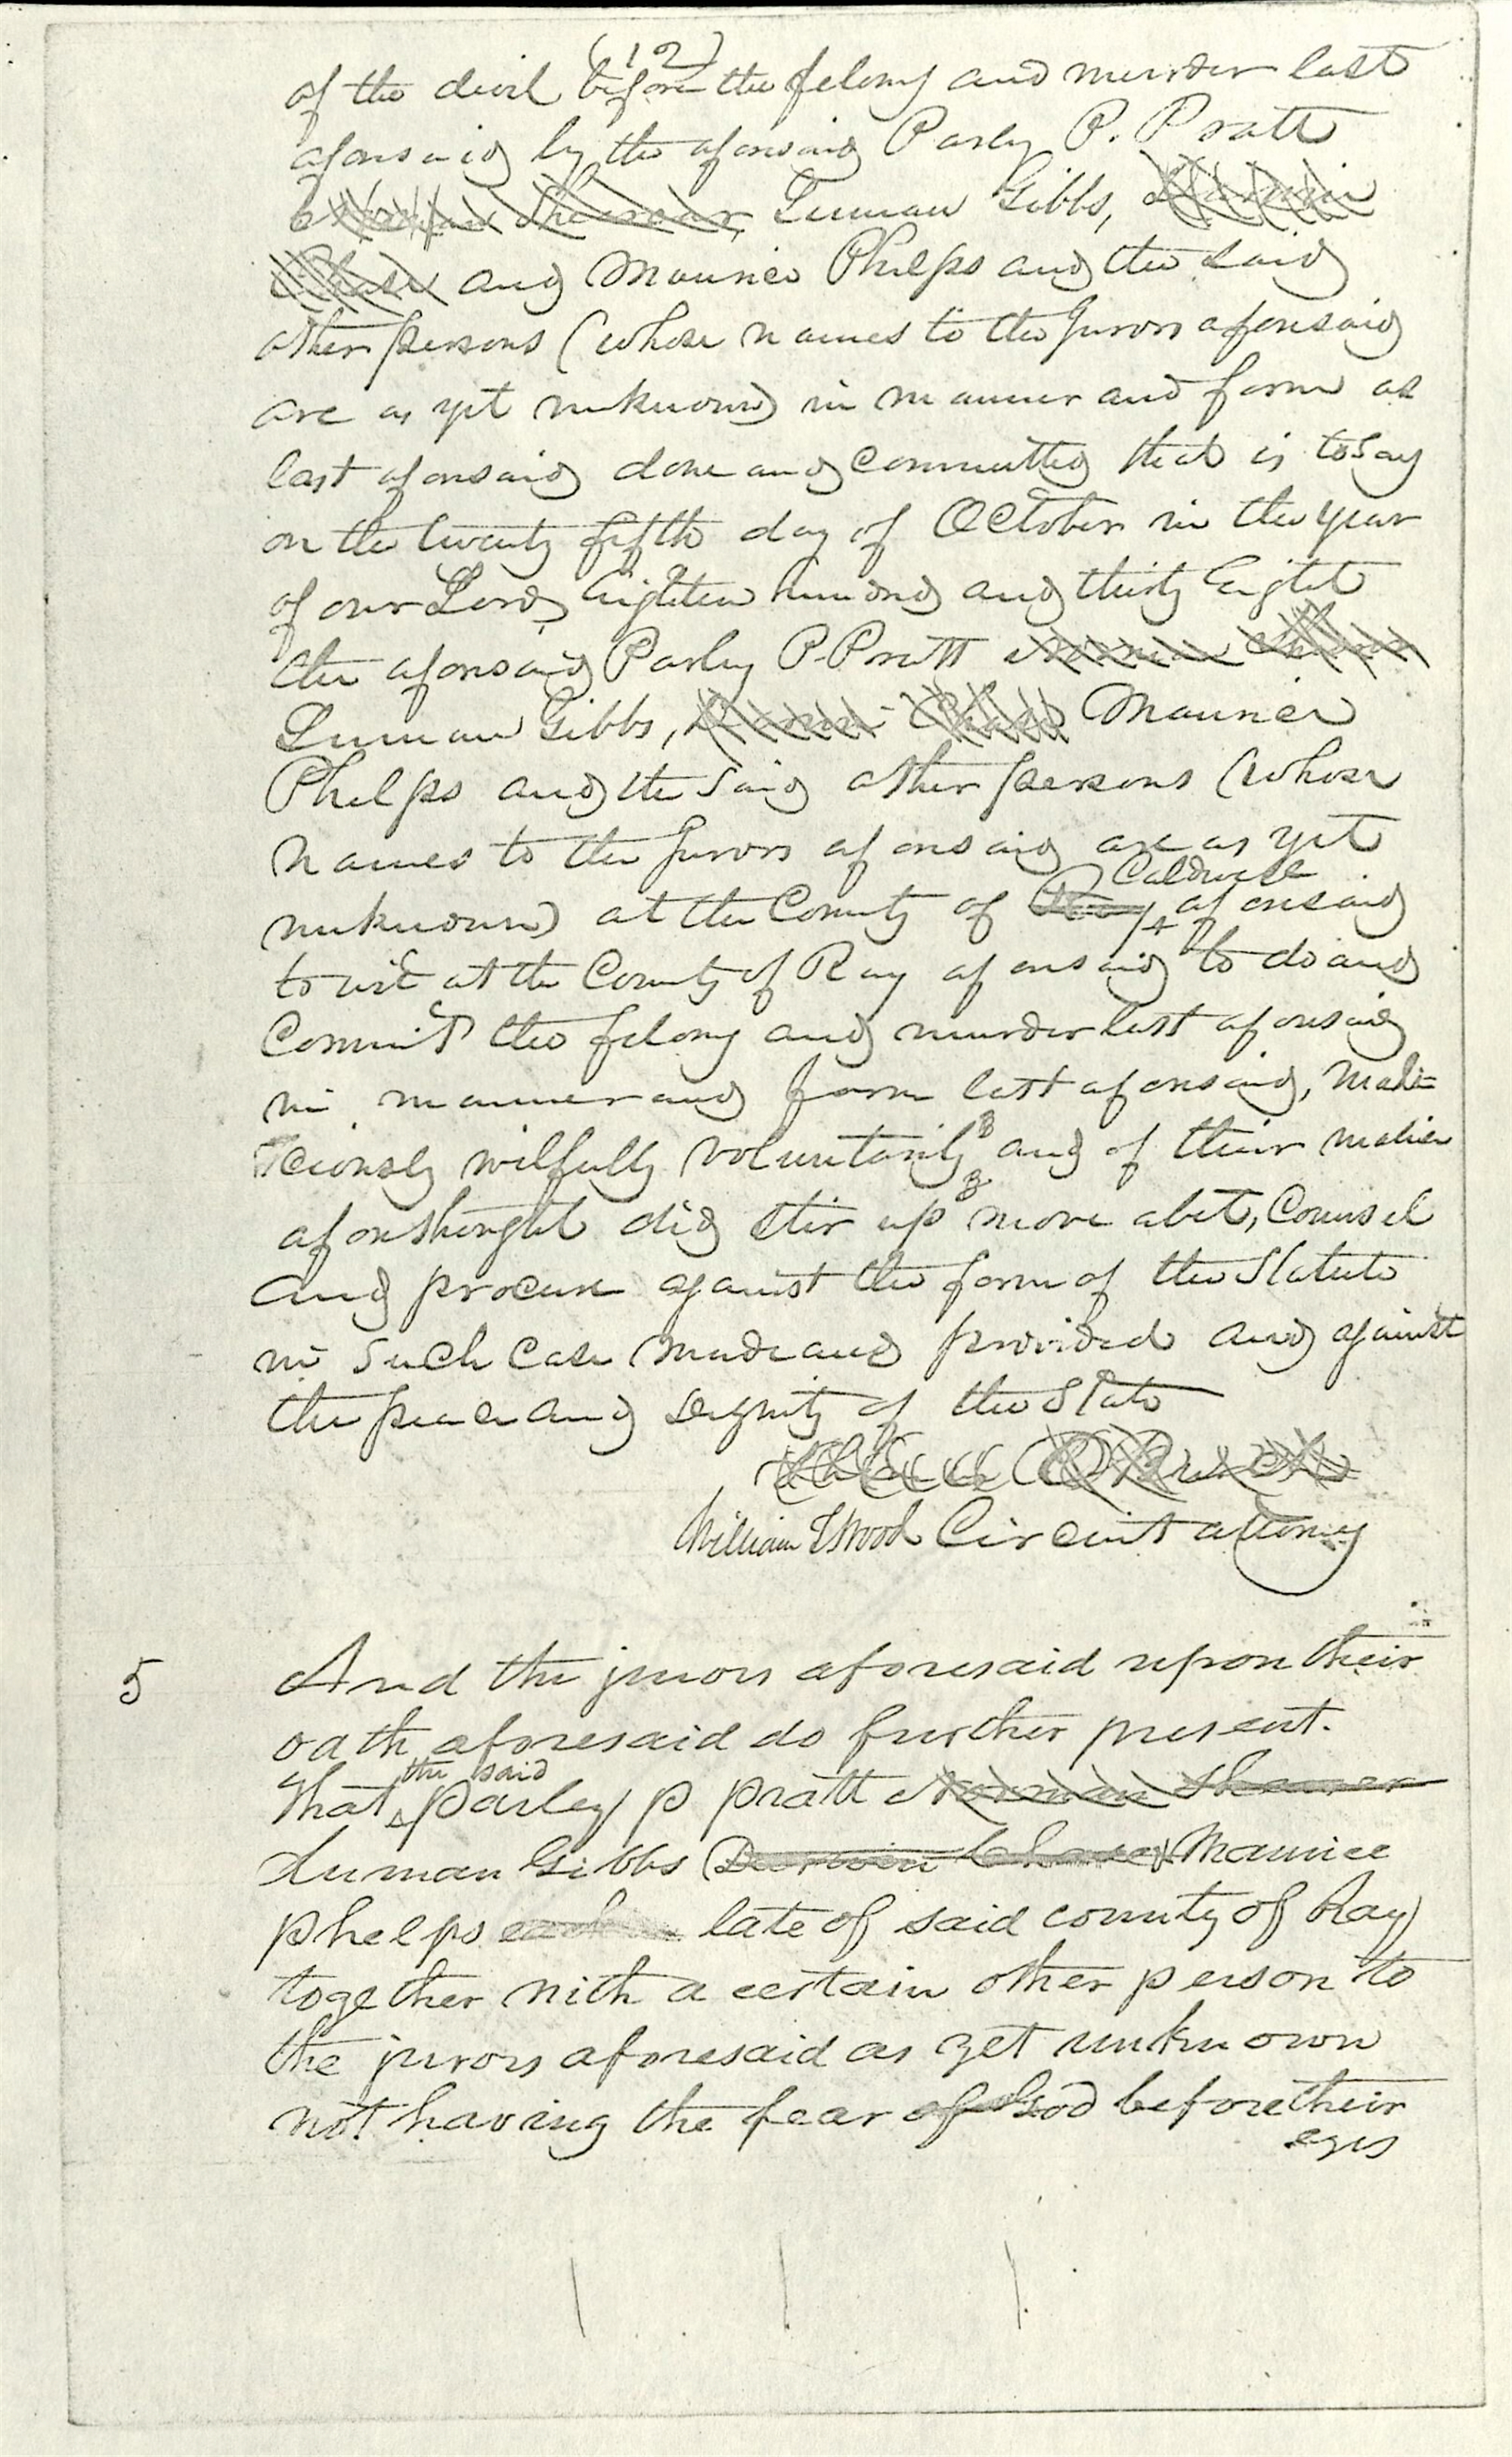 (12)
of the devil before the felony and murder last
aforesaid by the aforesaid Parley P. Pratt
Norman Shearer, Luman Gibbs, Darwin
Chase and Maurice Phelps and the said
other persons (whose names to the Jurors aforesaid
are as yet unknown) in manner and form as
last aforesaid done and committed that is to say
on the twenty fifth day of October in the year
of our Lord, Eighteen hundred and thirty Eight
the aforesaid Parley P. Pratt Norman Shearer
Luman Gibbs, Darwin Chase Maurice
Phelps and the said other persons (whose
names to the Jurors aforesaid are as yet
Caldwell
unknown) at the County of Ray aforesaid
to wit at the County of Ray aforesaid to do and
Commit the felony and murder last aforesaid
in manner and form last aforesaid, mali=
ciously wilfully voluntarily and of their malice
aforethought did stir up move abet, Counsel
and procure against the form of the Statute
in such case made and provided and against
the peace and dignity of the State
William T Wood Circuit attorney
5 And the jurors aforesaid upon their
oath aforesaid do further present.
the said
That Parley p pratt Norman Shearer
Luman Gibbs Darwin Chase & Maurice
phelps late of said county of Ray
together with a certain other person to
the jurors aforesaid as yet unknown
not having the fear of God before their
eyes